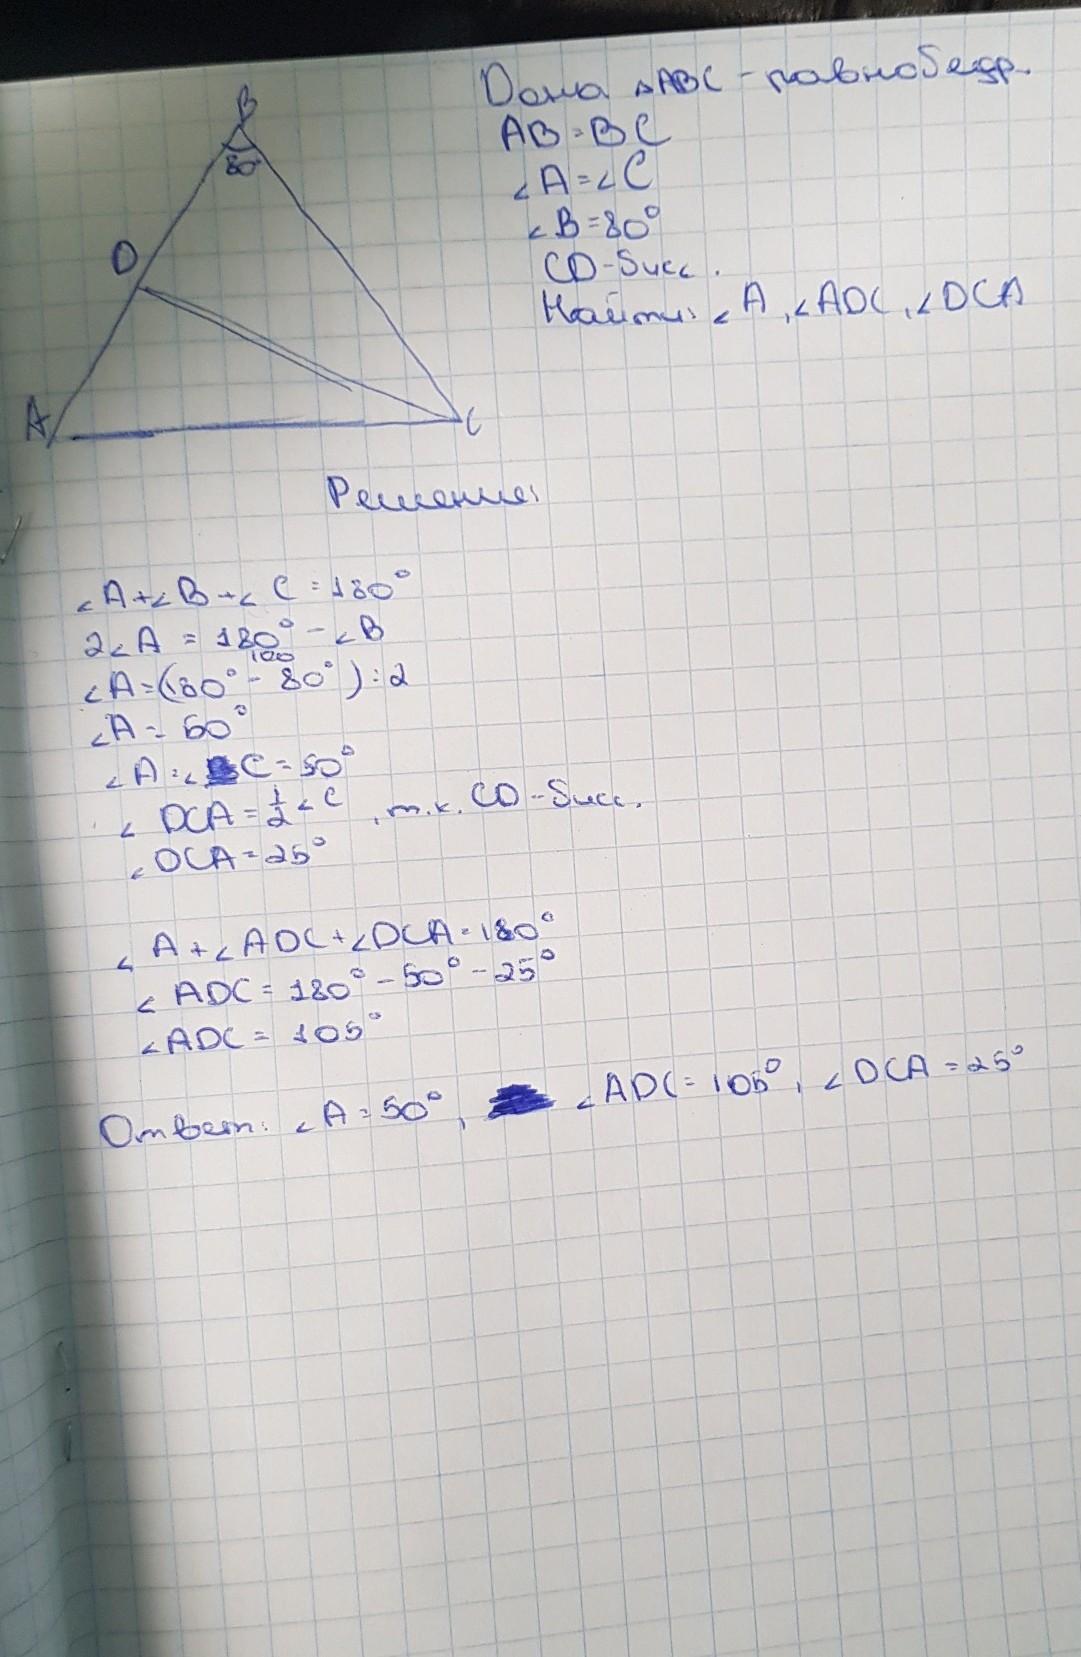 B
80°
D
A
C
Дана △ABC - равнобедр.
AB = BC
∠A = ∠C
∠B = 80°
CD - бисс.
Найти: ∠A, ∠ADC, ∠DCA
Решение:
∠A + ∠B + ∠C = 180°
2∠A = 180° - ∠B
100
∠A = (180° - 80°) : 2
∠A = 50°
∠A = ∠C = 50°
∠DCA = 1/2 ∠C, т.к. CD - бисс.
∠DCA = 25°
∠A + ∠ADC + ∠DCA = 180°
∠ADC = 180° - 50° - 25°
∠ADC = 105°
Ответ: ∠A = 50°, ∠ADC = 105°, ∠DCA = 25°